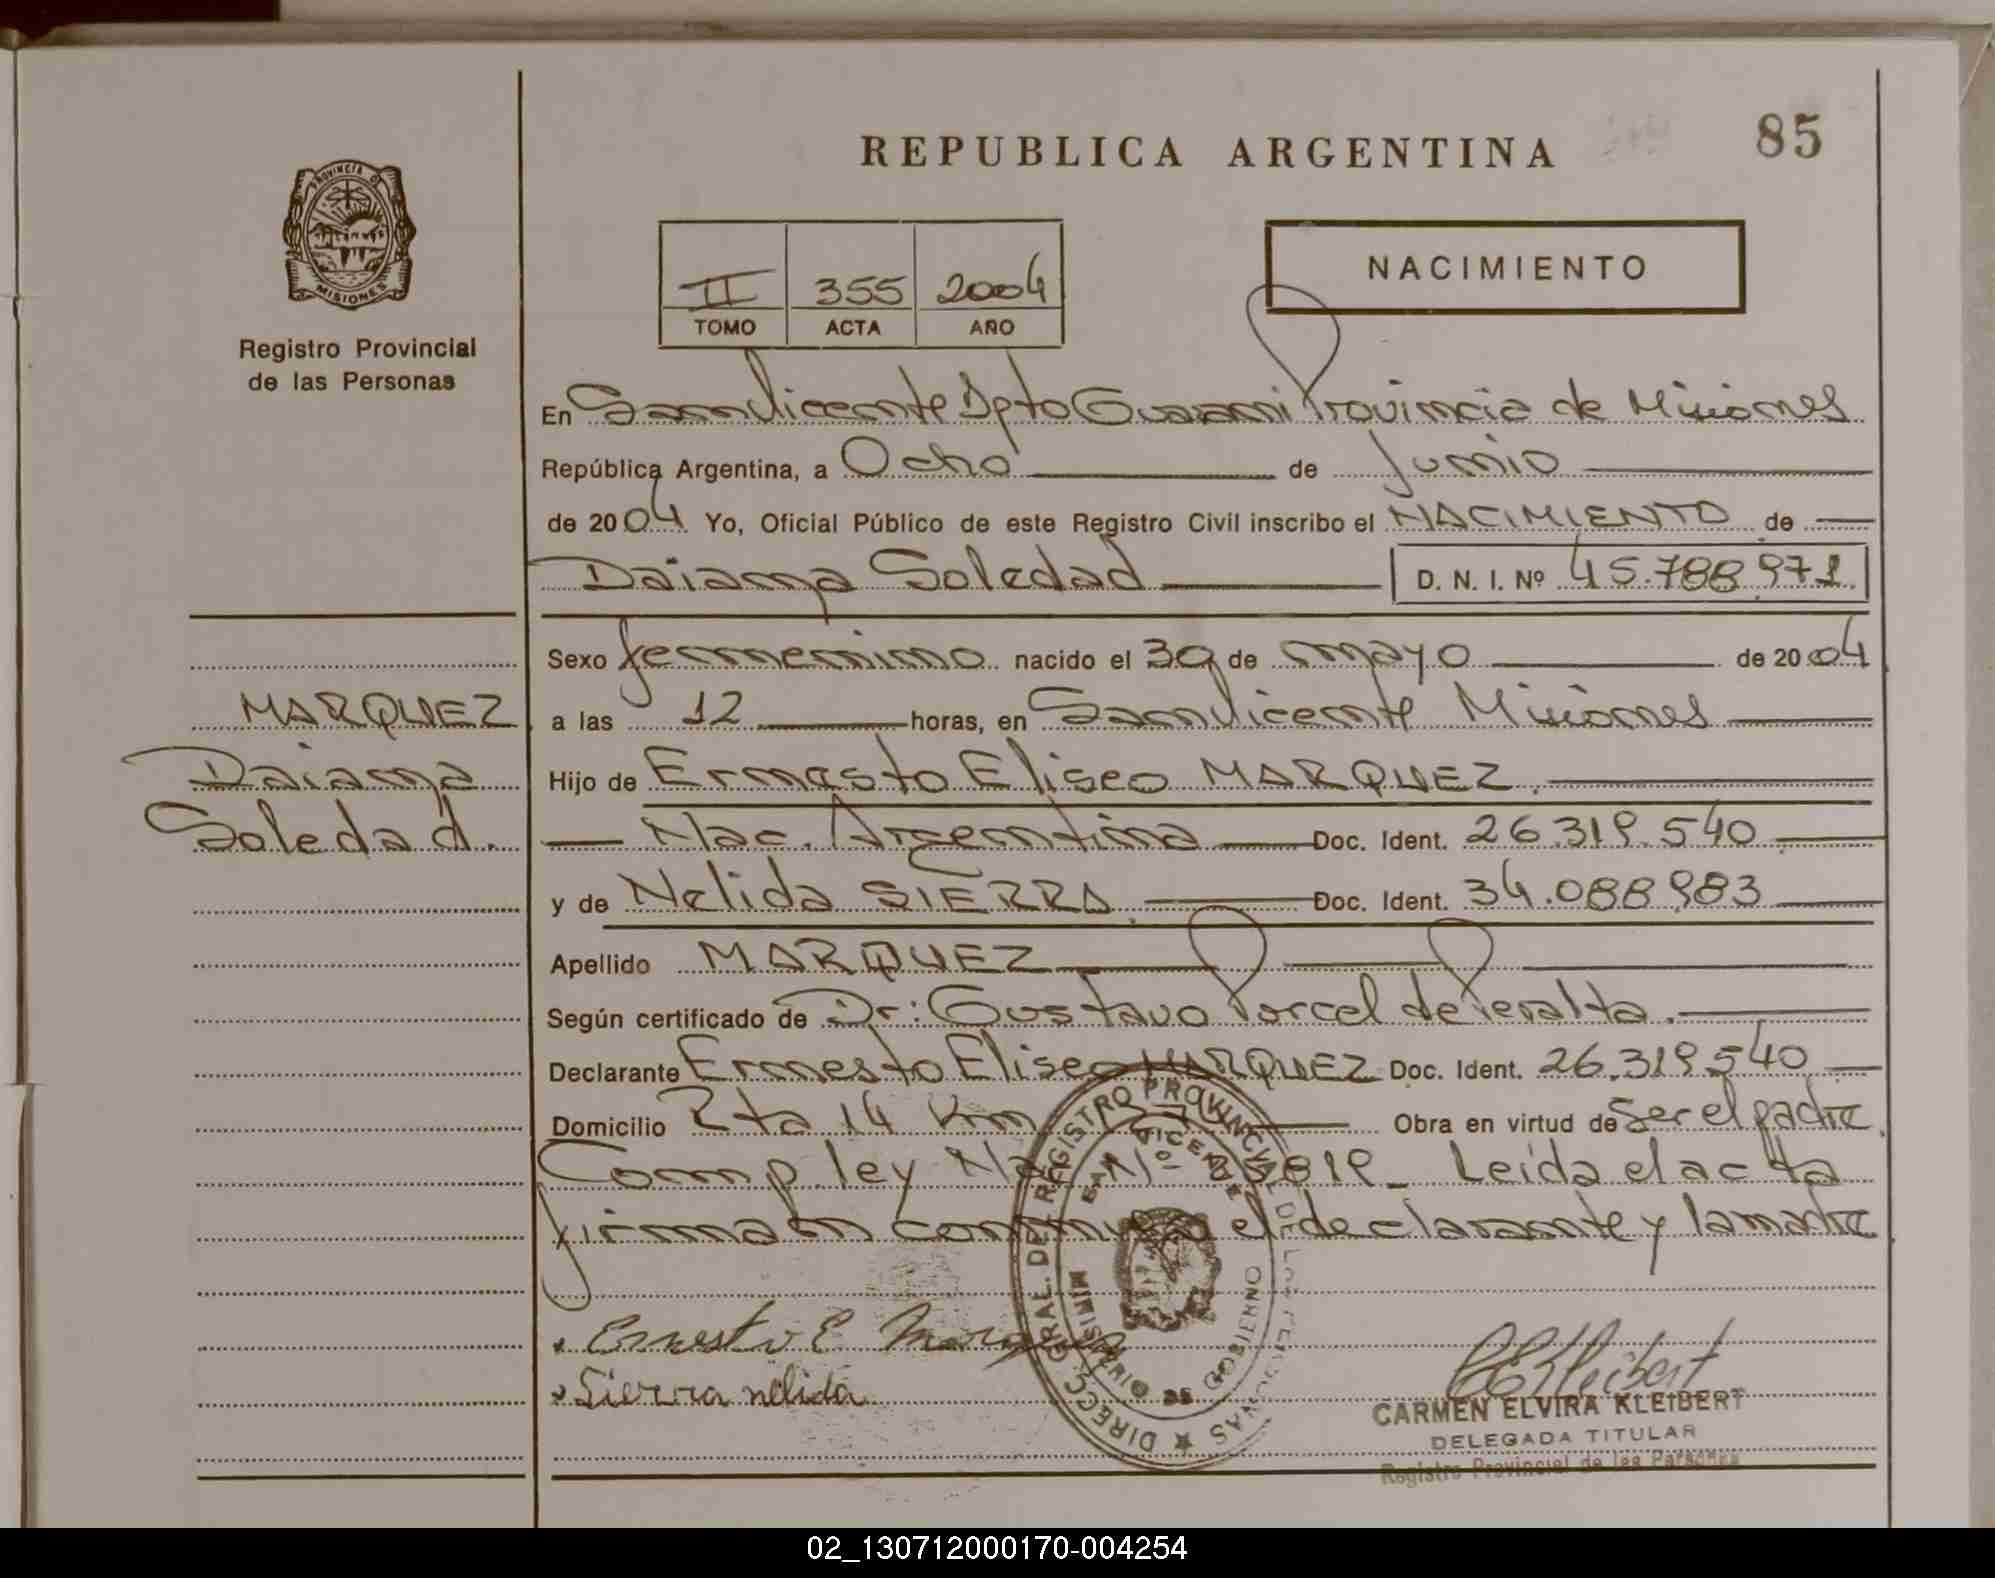 REPUBLICA ARGENTINA
85
PROVINCIA DE
MISIONES
Registro Provincial
de las Personas
II 355 2004
TOMO ACTA AÑO
NACIMIENTO
En San Vicente Dpto Guarani Provincia de Misiones
República Argentina, a Ocho de Junio
de 2004 Yo, Oficial Público de este Registro Civil inscribo el NACIMIENTO de
Daiana Soledad D. N. I. Nº 45.788.971
Sexo femenino nacido el 30 de mayo de 2004
MARQUEZ
a las 12 horas, en San Vicente Misiones
Daiana
Hijo de Ernesto Eliseo MARQUEZ.
Soledad.
Nac. Argentina Doc. Ident. 26.319.540
y de Nelida SIERRA. Doc. Ident. 34.088.983
Apellido MARQUEZ
Según certificado de Dr: Gustavo Porcel de Peralta.
Declarante Ernesto Eliseo MARQUEZ Doc. Ident. 26.319.540
Domicilio Rta 14 Km Obra en virtud de Ser el padre
Comp. ley Nac Nº 25819_ Leída el acta
firman conmigo el declarante y la madre
Ernesto E Marquez
Sierra nélida
DIRECC. GRAL. DEL REGISTRO PROVINCIAL DE LAS PERSONAS
SAN VICENTE
MINISTERIO DE GOBIERNO
CARMEN ELVIRA KLEIBERT
DELEGADA TITULAR
Registro Provincial de las Personas
02_130712000170-004254